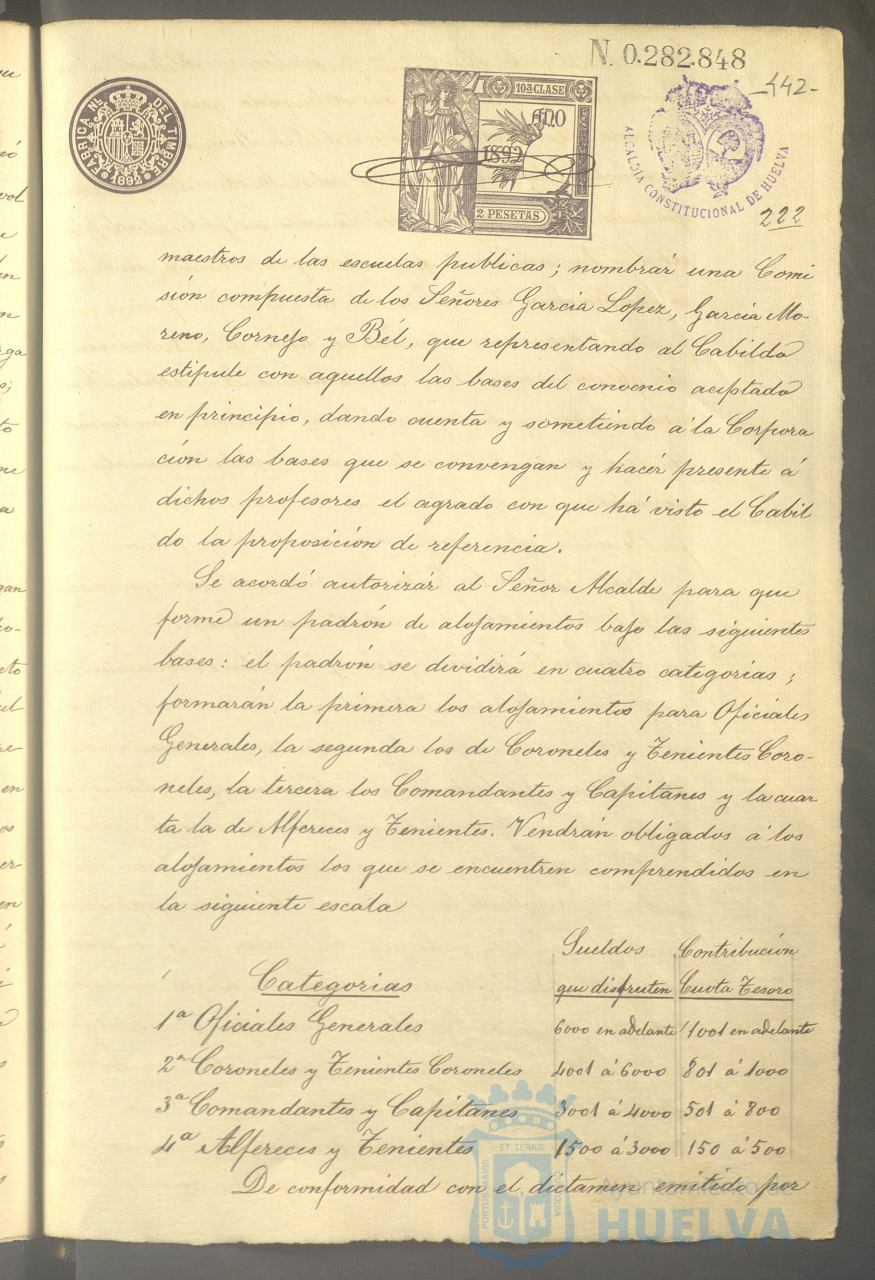 N. 0.282.848
-442-
FABRICA NL. DEL TIMBRE
1892
10ª CLASE
AÑO
1892
2 PESETAS
ALCALDIA CONSTITUCIONAL DE HUELVA
222
maestros de las escuelas publicas; nombrár una Comi
sión compuesta de los Señores Garcia Lopez, Garcia Mo-
reno, Cornejo y Bél, que representando al Cabildo
estipule con aquellos las bases del convenio aceptado
en principio, dando cuenta y sometiendo á la Corpora
ción las bases que se convengan y hacér presente á
dichos profesores el agrado con que há visto el Cabil
do la proposición de referencia.
Se acordó autorizár al Señor Alcalde para que
forme un padrón de alojamientos bajo las siguientes
bases: el padrón se dividirá en cuatro categorias;
formarán la primera los alojamientos para Oficiales
Generales, la segunda los de Coroneles y Tenientes Coro-
neles, la tercera los Comandantes y Capitanes y la cuar
ta la de Alfereces y Tenientes. Vendrán obligados á los
alojamientos los que se encuentren comprendidos en
la siguiente escala
Sueldos Contribución
Categorias que disfruten Cuota Tesoro
1ª Oficiales Generales 6000 en adelante 1001 en adelante
2ª Coroneles y Tenientes Coroneles 4001 á 6000 801 á 1000
3ª Comandantes y Capitanes 3001 á 4000 501 á 800
4ª Alfereces y Tenientes 1500 á 3000 150 á 500
De conformidad con el dictamen emitido por
ET TERRÆ
PORTUS MARIS
Ayuntamiento de
HUELVA